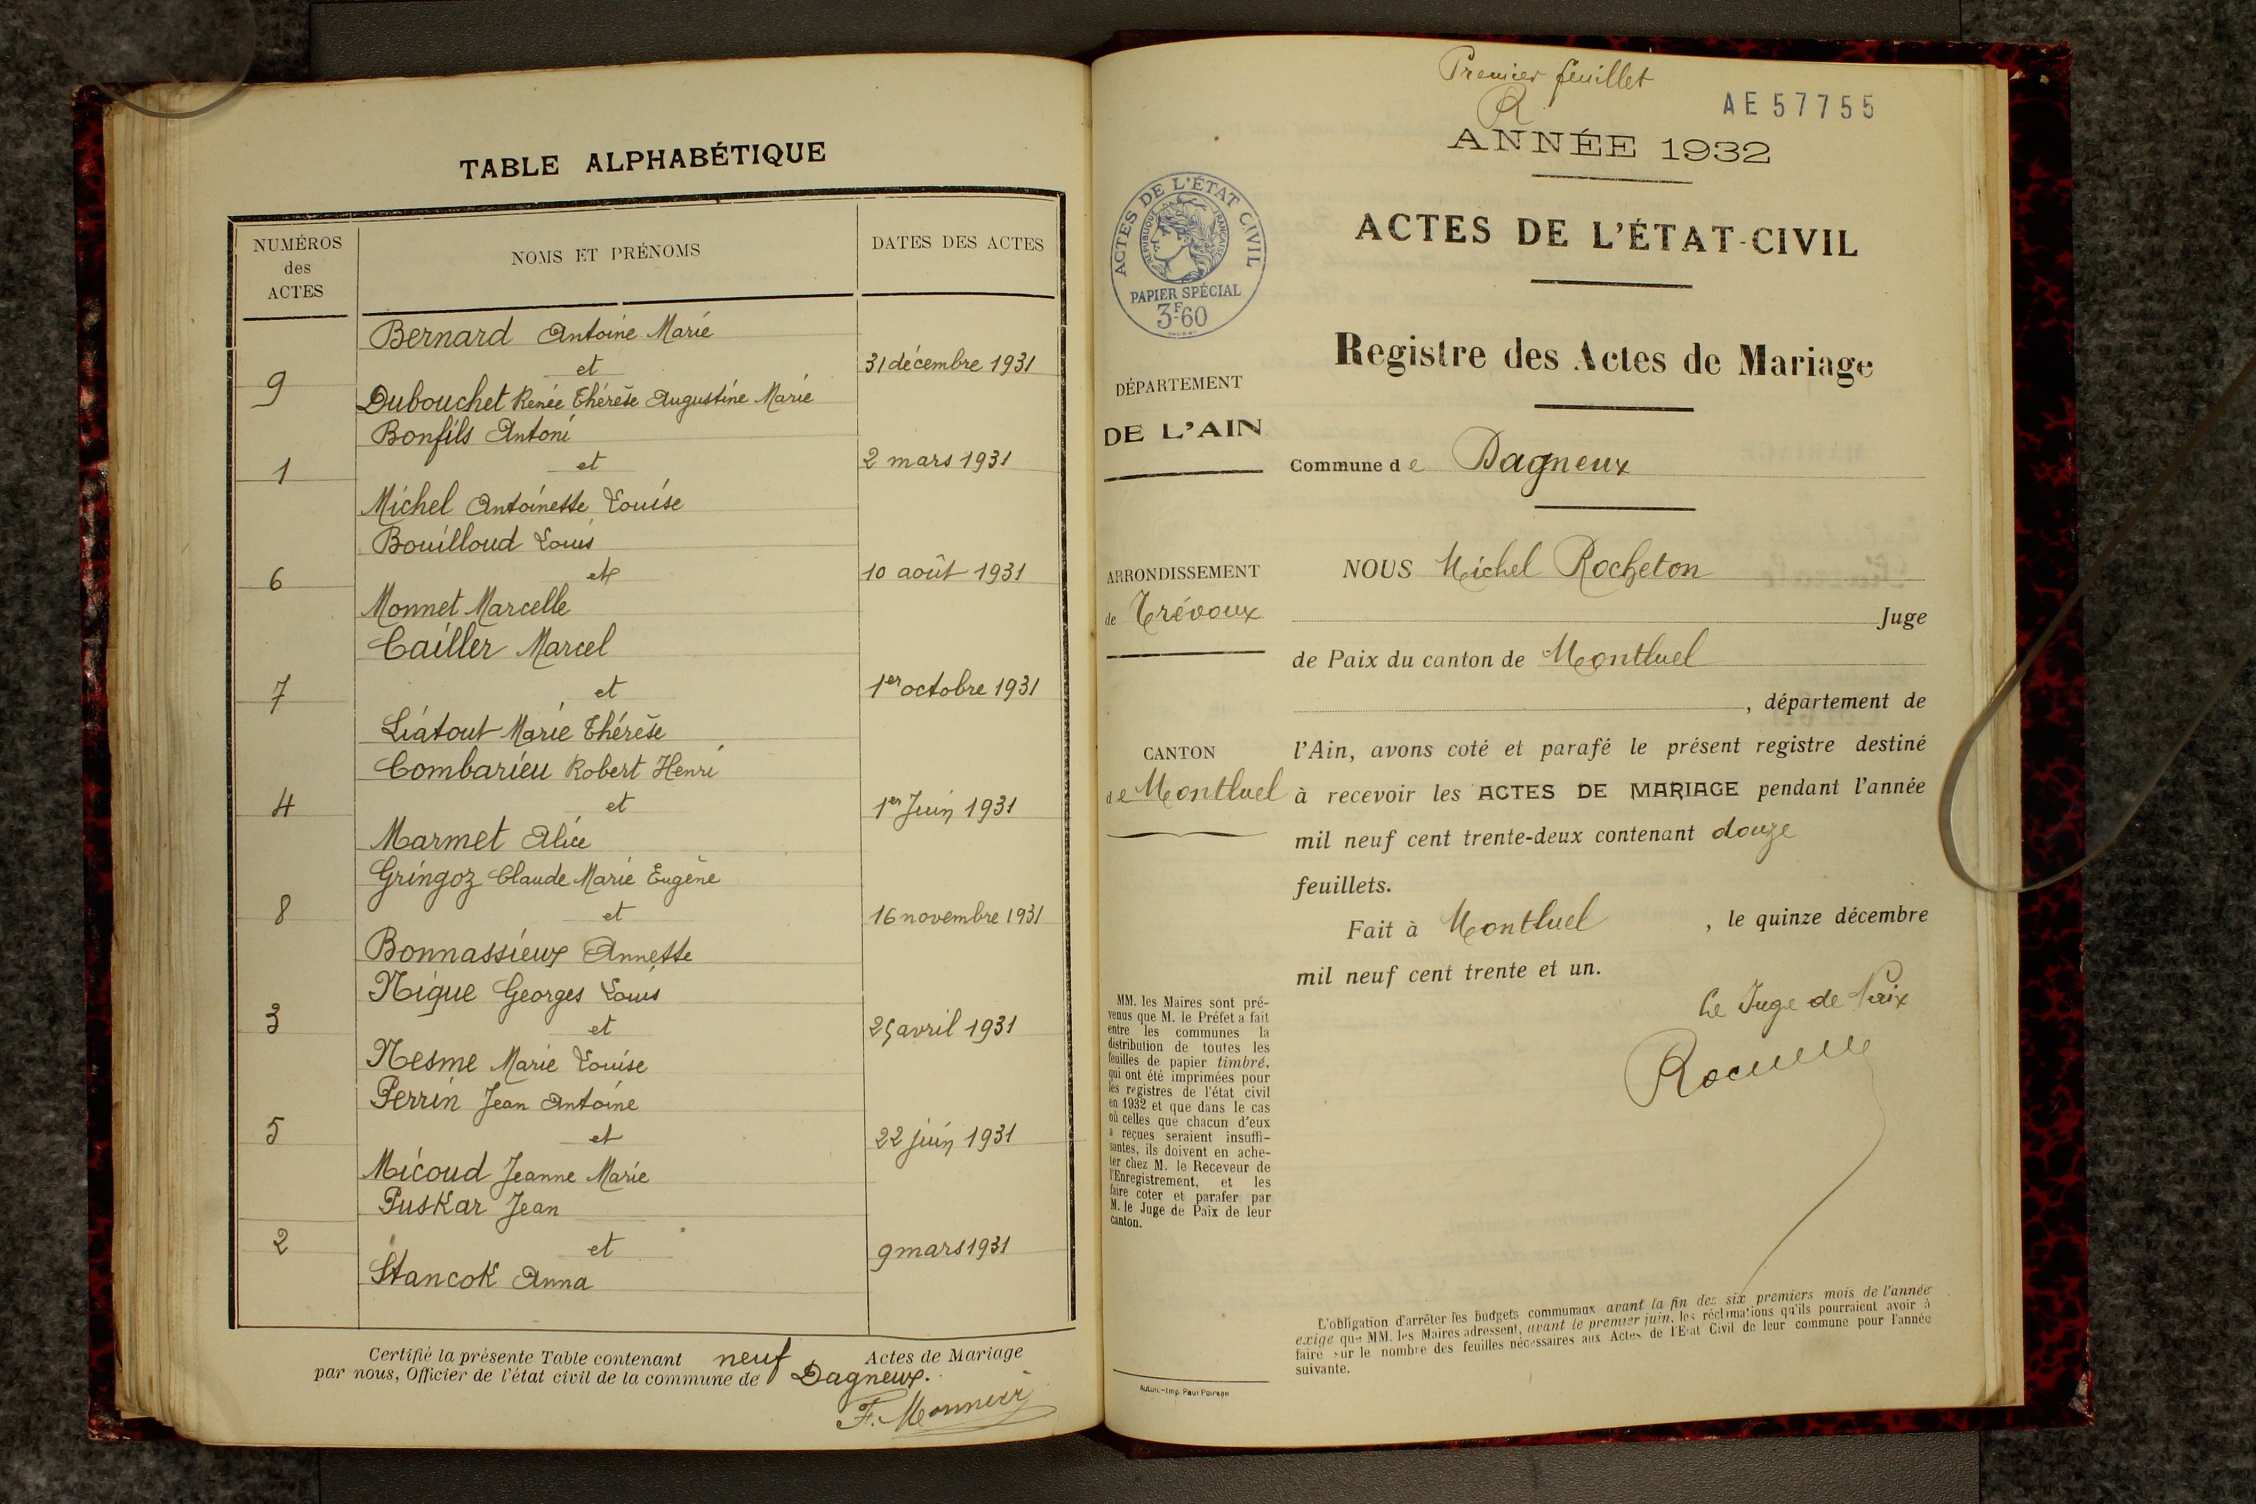 TABLE ALPHABÉTIQUE
NUMÉROS
des
ACTES
NOMS ET PRÉNOMS
DATES DES ACTES
Bernard Antoine Marie
9 et 31 décembre 1931
Dubouchet Renée Thérèse Augustine Marie
Bonfils Antoni
1 et 2 mars 1931
Michel Antoinette Louise
Bouilloud Louis
6 et 10 août 1931
Monnet Marcelle
Cailler Marcel
7 et 1er octobre 1931
Liatout Marie Thérèse
Combarieu Robert Henri
4 et 1er Juin 1931
Marmet Alice
Gringoz Claude Marie Eugène
8 et 16 novembre 1931
Bonnassieux Annette
Nique Georges Louis
3 et 25 avril 1931
Nesme Marie Louise
Perrin Jean Antoine
5 et 22 juin 1931
Micoud Jeanne Marie
Puskar Jean
2 et 9 mars 1931
Stancok Anna
Certifié la présente Table contenant neuf Actes de Mariage
par nous, Officier de l'état civil de la commune de Dagneux.
F. Monnerr
Premier feuillet
R
AE57755
ANNÉE 1932
ACTES DE L'ÉTAT CIVIL
RÉPUBLIQUE FRANÇAISE
PAPIER SPÉCIAL
3F60
ACTES DE L'ÉTAT-CIVIL
Registre des Actes de Mariage
DÉPARTEMENT
DE L'AIN
Commune de Dagneux
ARRONDISSEMENT
de Trévoux
CANTON
de Montluel
NOUS Michel Rocheton
Juge
de Paix du canton de Montluel
, département de
l'Ain, avons coté et parafé le présent registre destiné
à recevoir les ACTES DE MARIAGE pendant l'année
mil neuf cent trente-deux contenant douze
feuillets.
Fait à Montluel , le quinze décembre
mil neuf cent trente et un.
Le Juge de Paix
MM. les Maires sont pré-
venus que M. le Préfet a fait
entre les communes la
distribution de toutes les
feuilles de papier timbré,
qui ont été imprimées pour
les registres de l'état civil
en 1932 et que dans le cas
où celles que chacun d'eux
a reçues seraient insuffi-
santes, ils doivent en ache-
ter chez M. le Receveur de
l'Enregistrement, et les
faire coter et parafer par
M. le Juge de Paix de leur
canton.
L'obligation d'arrêter les budgets communaux avant la fin des six premiers mois de l'année
exige que MM. les Maires adressent, avant le premier juin, les réclamations qu'ils pourraient avoir à
faire sur le nombre des feuilles nécessaires aux Actes de l'Etat Civil de leur commune pour l'année
suivante.